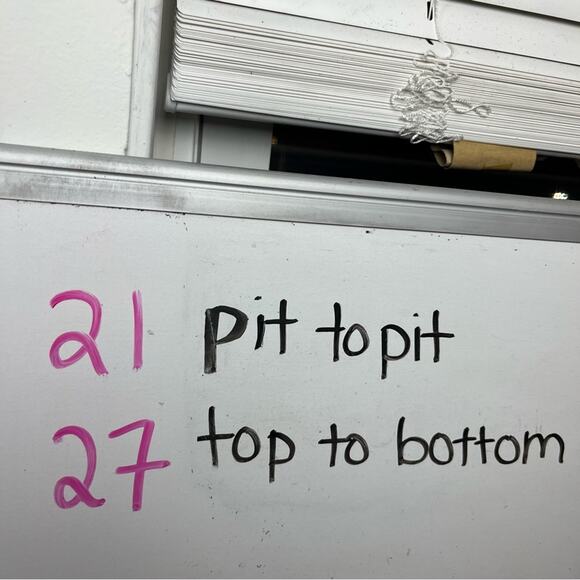 21 pit to pit
27 top to bottom